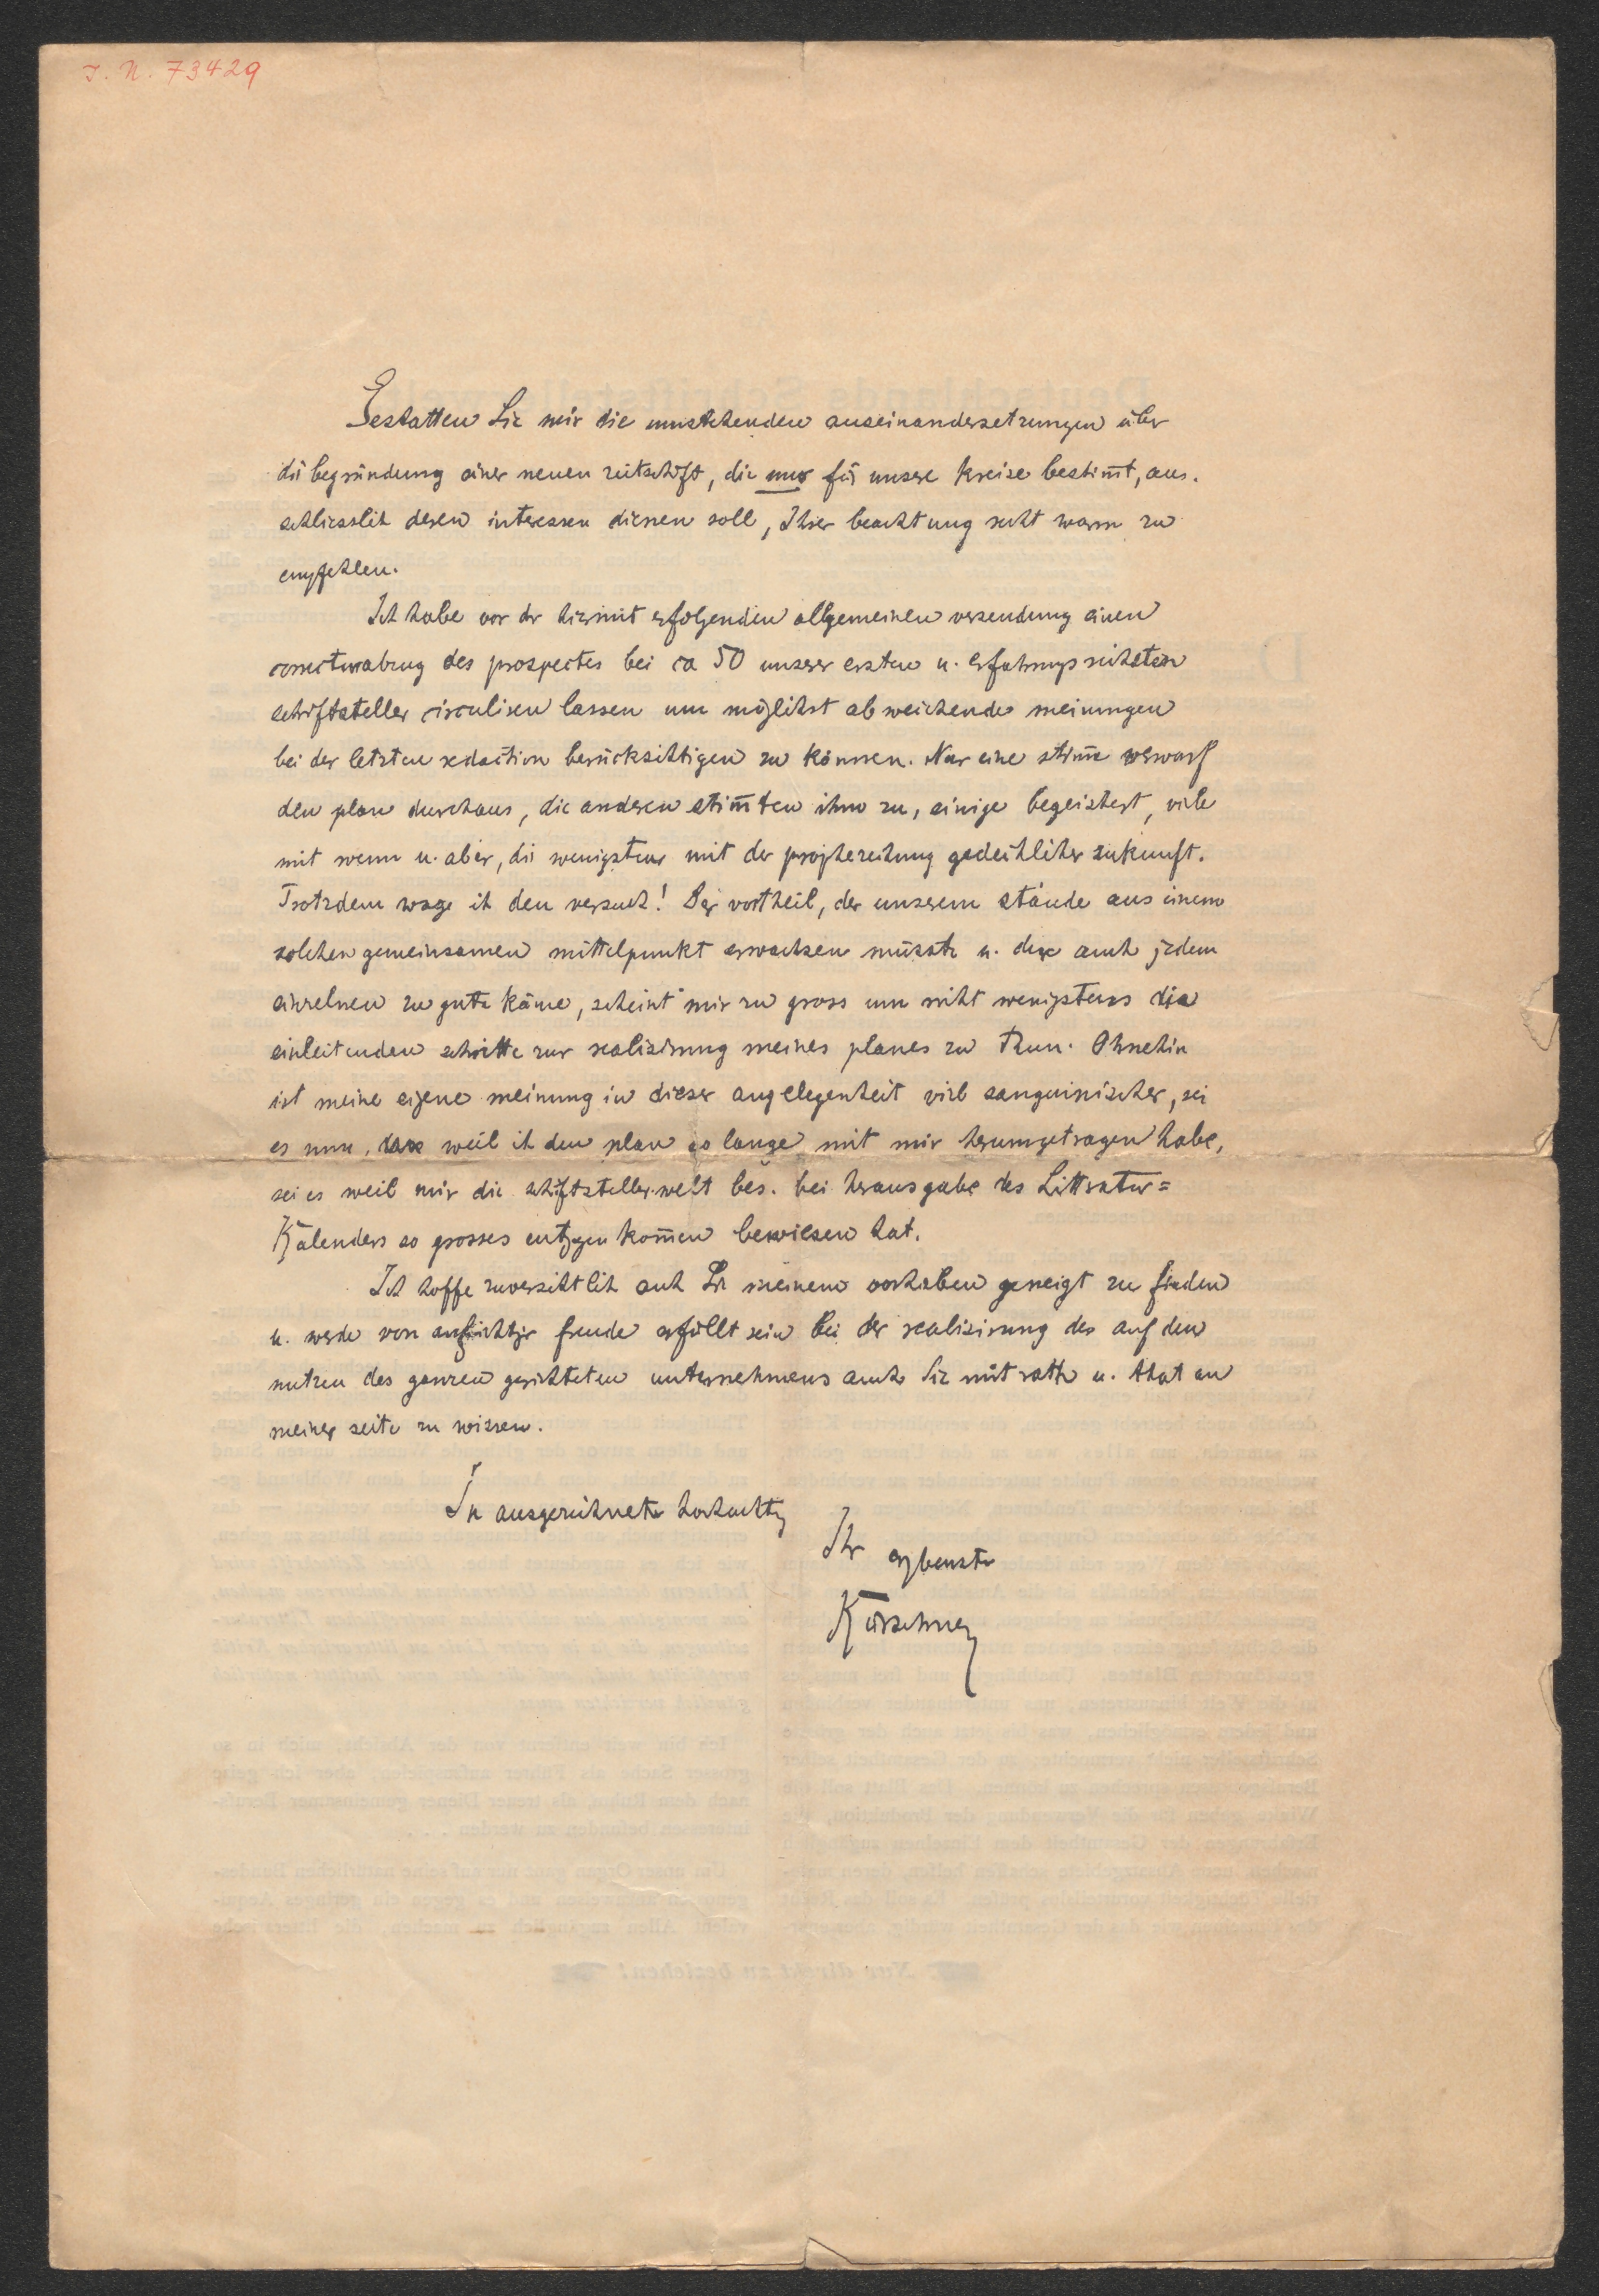 J. N. 73429
Gestatten Sie mir die umstehenden auseinandersetzungen über
die begründung einer neuen zeitschrift, die nur für unsere kreise bestim̄t, aus-
schliesslich deren interessen dienen soll, Ihrer beachtung recht warm zu
empfehlen.
Ich habe vor der hiermit erfolgenden allgemeinen versendung einen
correcturabzug des prospectes bei ca 50 unserer ersten u. erfahrungsreichsten
schriftsteller circuliren lassen um möglichst abweichende meinungen
bei der letzten redaction berücksichtigen zu können. Nur eine stim̄e verwarf
den plan durchaus, die anderen stim̄ten ihm zu, einige begeistert, viele
mit wenn u. aber, die wenigsten mit der prophezeihung gedeihlicher zukunft.
Trotzdem wage ich den versuch! Der vortheil, der unserem stande aus einem
solchen gemeinsamen mittelpunkt erwachsen müsste u. der auch jedem
einzelnen zu gute käme, scheint mir zu gross um nicht wenigstens die
einleitenden schritte zur realisirung meines planes zu thun. Ohnehin
ist meine eigene meinung in dieser angelegenheit viel sanguinischer, sei
es nun, weil ich den plan so lange mit mir herumgetragen habe,
sei es weil mir die schriftstellerwelt bes. bei herausgabe des Litteratur=
Kalenders so grosses entgegenkom̄en bewiesen hat.
Ich hoffe zuversichtlich auch Sie meinem vorhaben geneigt zu finden
u. werde von aufrichtiger freude erfüllt sein bei der realisirung des auf den
nutzen des ganzen gerichteten unternehmens auch Sie mit rath u. that an
meiner seite zu wissen.
In ausgezeichneter hochachtg
Ihr ergebenster
Kürschner
Nur direkt zu beziehen!